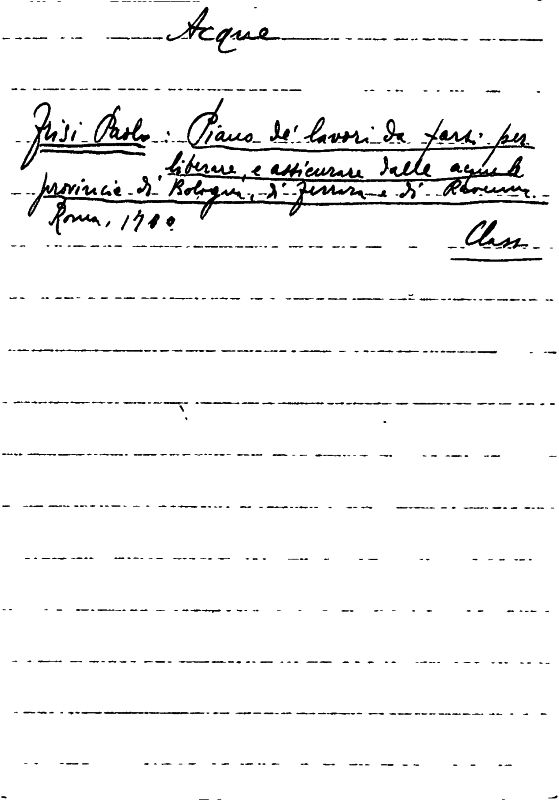 Acque
Frisi Paolo: Piano de' lavori da farsi per
liberare, e assicurare dalle acque le
provincie di Bologna, di Ferrara e di Ravenna
Roma, 17
Class